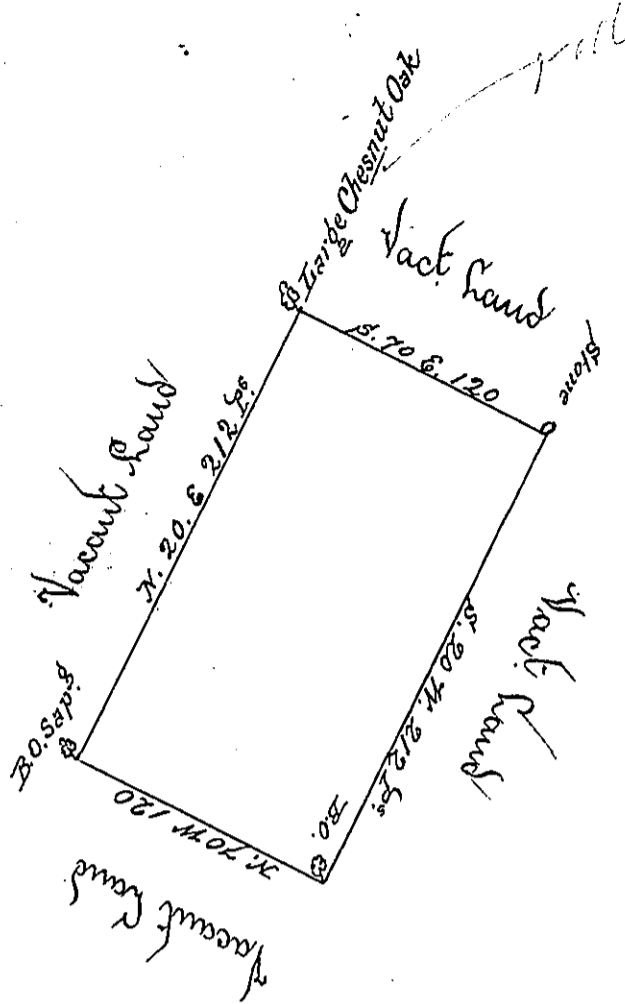 Large Chesnut Oak
Vact. Land
S. 70 E. 120
Stone
Vacant Land
N. 20. E 212 Ps.
B.O. Sap.g
Vact. Land
S. 20 W. 212 Ps.
B.O.
N. 70 W 120
Vacant Land